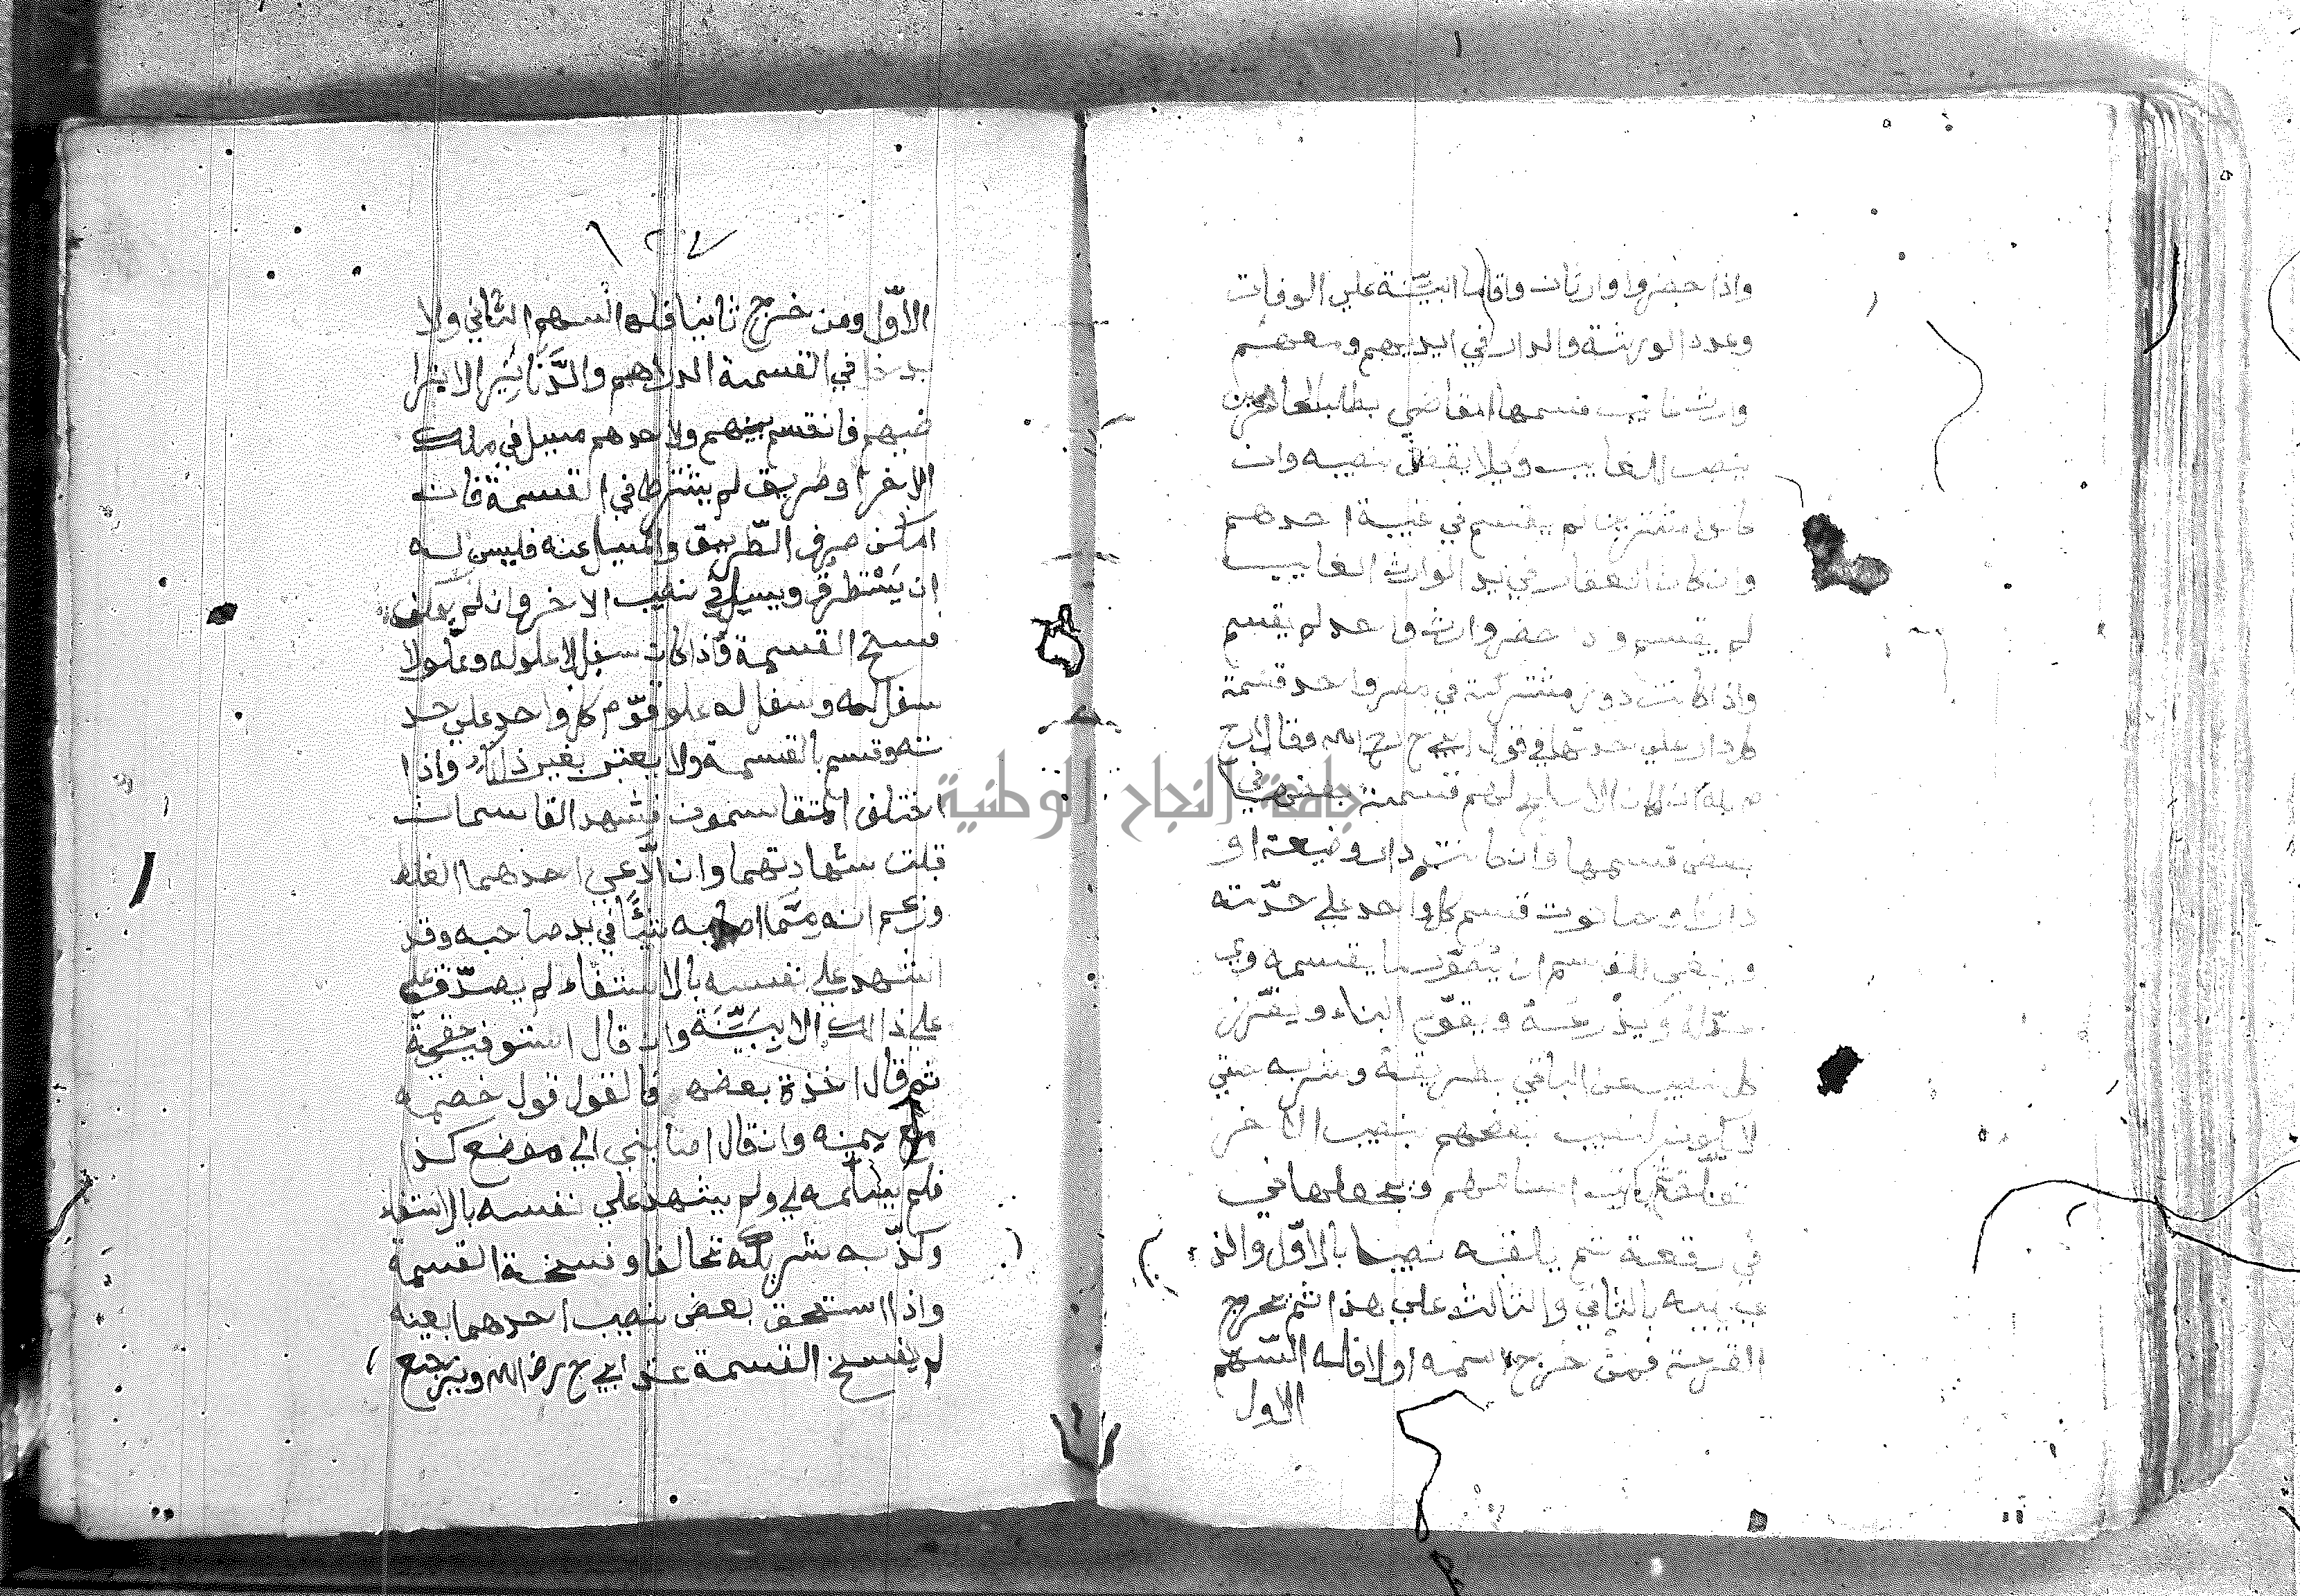 واذا حضروا وارثان واقاما البيّنة علي الوفات
وعدد الورثة والدار في ايديهم ومعهم
وارث غايب قسمها القاضي بطلب الحاضرين
بنصب الغايب وكيلا يقبض نصيبه وان
كانوا مشتريين لم يقسم في غيبة احدهم
وان كان العقار في يد الوارث الغايب
لم يقسم وا حضر وارث واحد لم يقسم
واذا كانت دور مشتركة في مصر واحد قسمة
كل دار علي حدتها في قول ابي ح رح الله وقالا رح
م الله ان كان الاصلح لهم قسمة بعضها في
بعض قسمها وان كانت دار وضيعة او
دار او حانوت قسم كل واحد علي حدّته
وينبغي للقاسم ان يصوّر ما يقسمه وي
عدّله ويذرعه ويقوّم البناء ويفرز
كل نصيب عن الباقي بطريقه وشربه حتي
لا يكون لنصيب بعضهم بنصيب الاخر
تعلق يكتب اساميهم ويجعلها في
في رقعة ثم يلقبه نصيبا بالاوّل والذ
ي يليه بالثاني والثالث علي هذا ثم يخرج
القرعة فمن خرج اسمه اولا فله السّهم
الاول
١٢٧
الاوّل ومن خرج ثانيا فله السهم الثاني ولا
يدخل في القسمة الدراهم والدَّنانير الا بترا
ضيهم فان قسم بينهم ولاحدهم مسيل في ملك
الاخر او طريق لم يشترط في القسمة فان
امكن صرف الطّريق والمسيل عنه فليس له
ان يَسْتطرق ويسيل في نصيب الاخر وان لم يمكن
فسخ القسمة واذا كان سفل لا علو له وعلو لا
سفل له وسفل له علو قوّم كل واحد علي حد
ته وقسم بالقسمة ولا يعتبر بغير ذلك واذا
اختلف المتقاسمون فشهد القاسمان
قبلت شهادتهما وان ادّعي احدهما الغلط
وزعم انه مِمَّا اصابه شيئًا في يد صاحبه وقد
اشهد علي نفسه بالاستفاء لم يصدّق علي
علي ذالك الا ببَيِّنَة وان قال استوفيت حقي
ثم قال اخذة بعضه فالقول قول خصمه
مع يمينه وان قال اصابني الي موضع كذا
فلم يسلّمه لي ولم يشهد علي نفسه بالاستفاء
وكذّبه شريكه تحالفا وفسخة القسمة
واذا استحق بعض نصيب احدهما بعينه
لم يفسخ القسمة عند ابي ح رض الله ويرجع
جامعة النجاح الوطنية